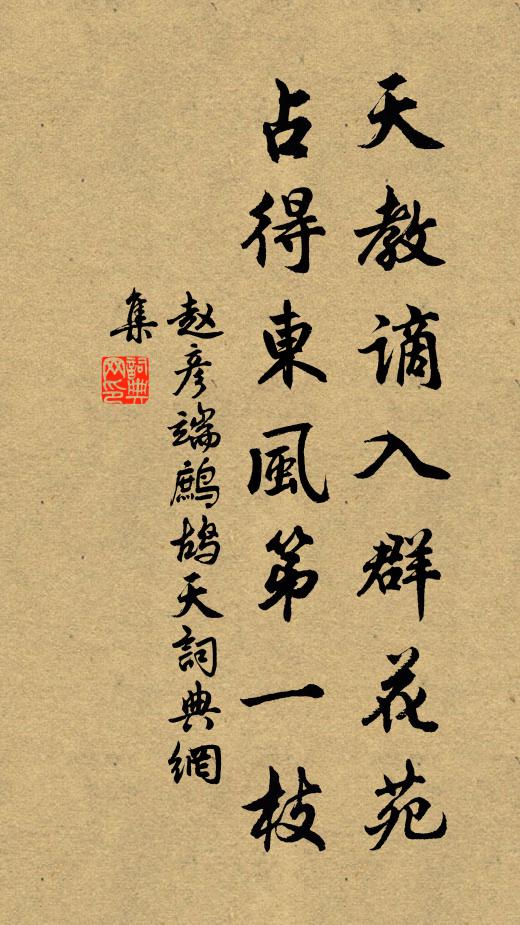 天教謫入群花苑
占得東風第一枝
赵彦端鷓鴣天詞典網
集
詞典
网印